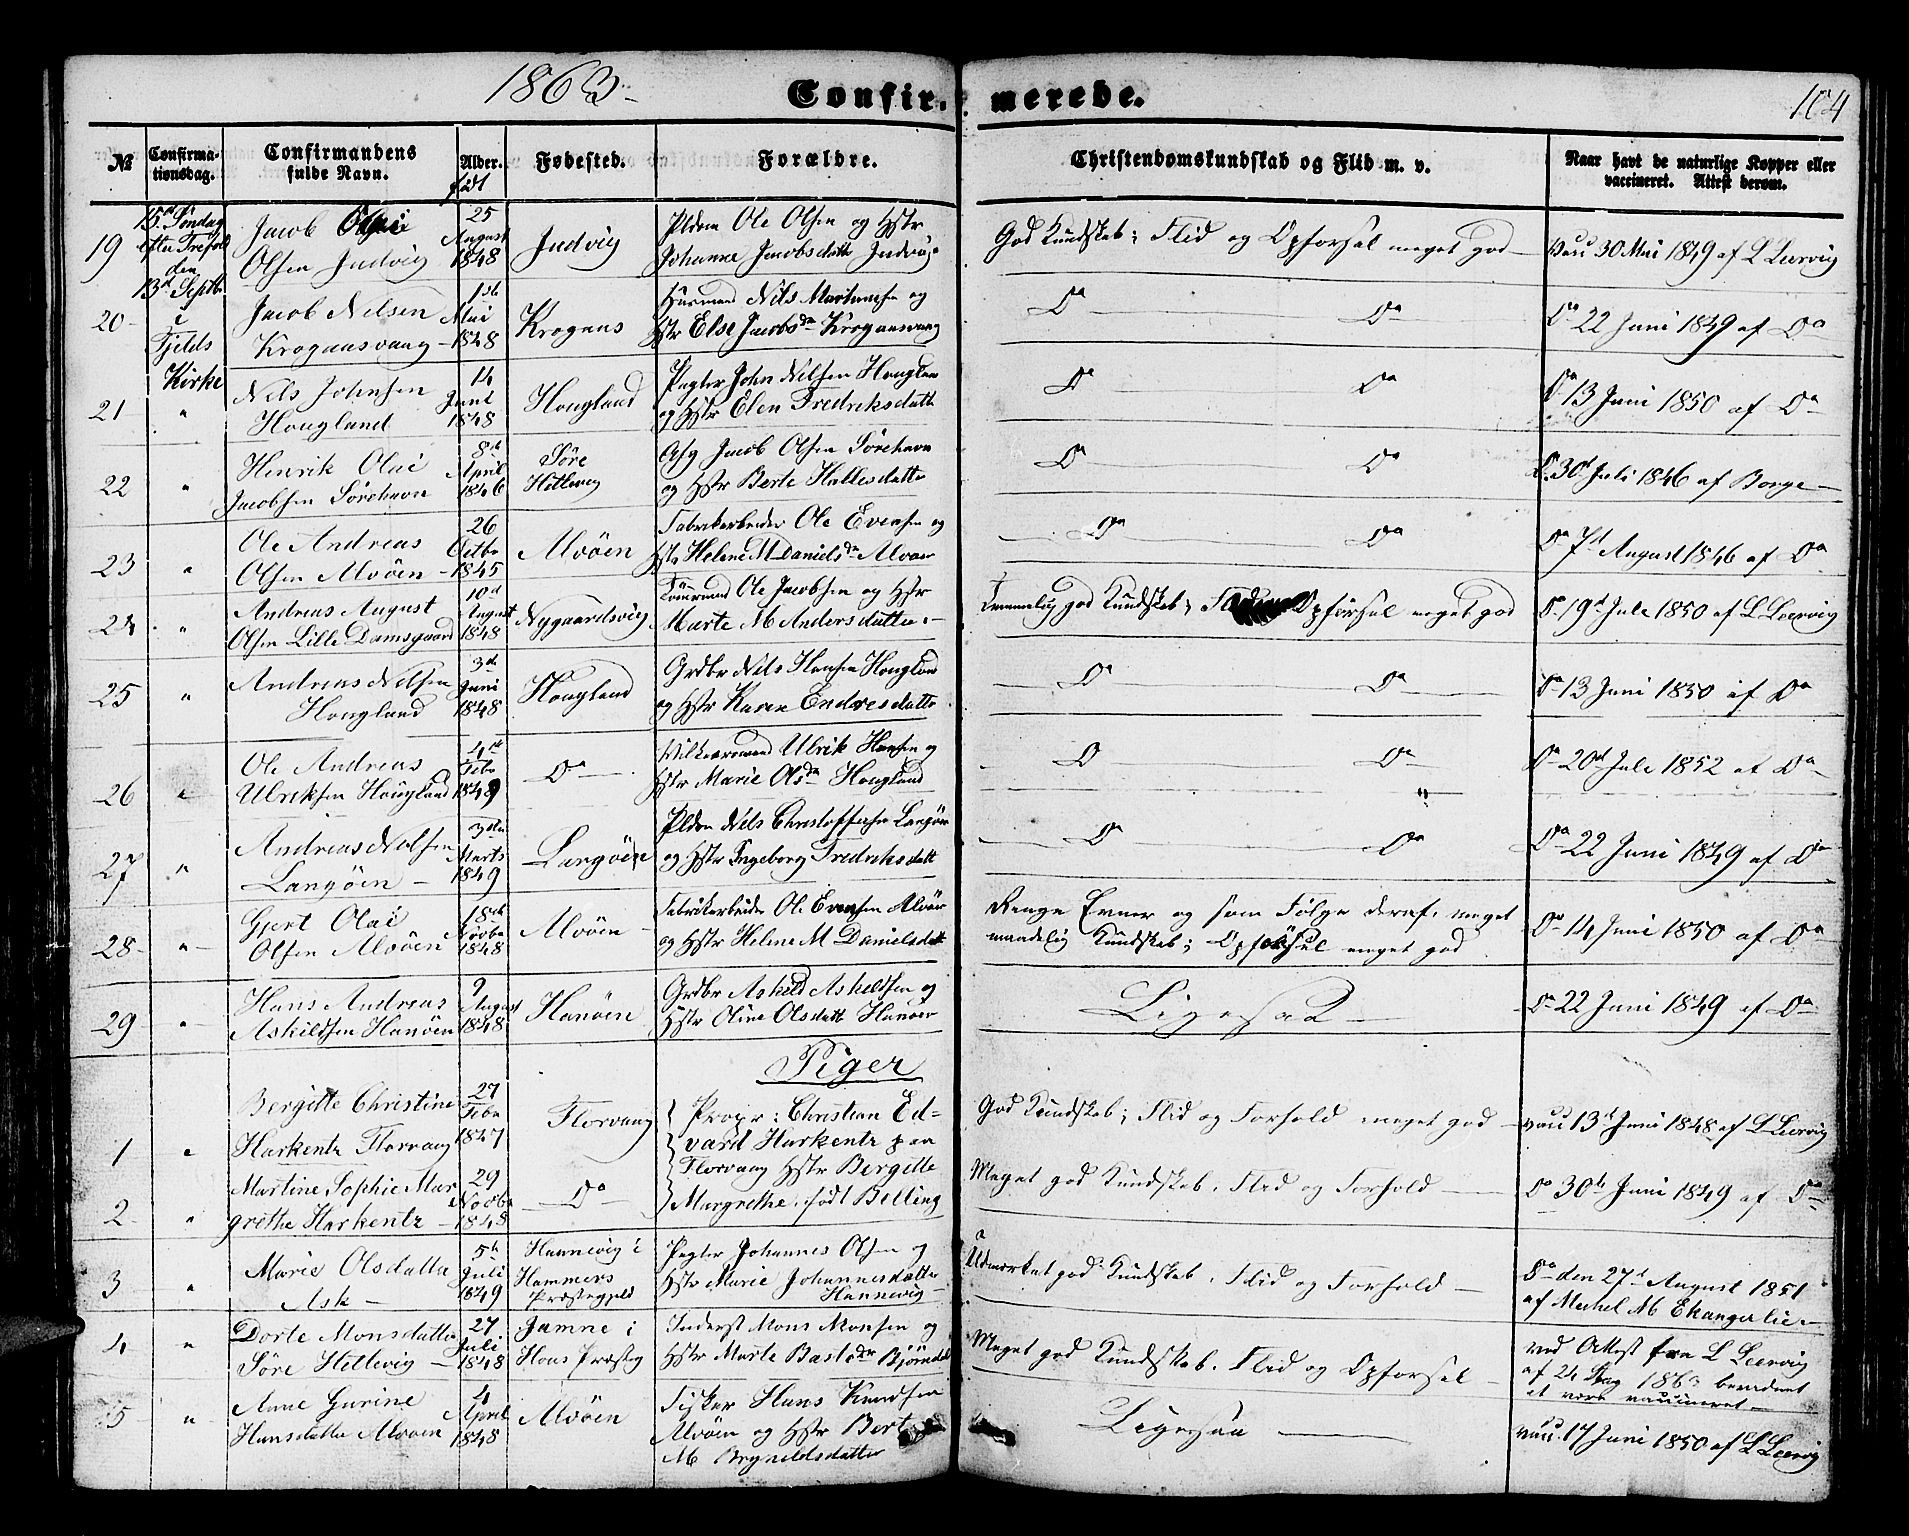 1863
Confirmerede.
104
№ Confirmationsdag. Confirmandens fulde Navn. Alder. født Fødested. Forældre. Christendomskundskab og Flid m. v. Naar havt de naturlige Kopper eller vaccineret. Attest herom.
19 15d Søndag efter Trefold den Jacob Olsen Judvig 25 August 1848 Judvig Ole Olsen og Hstr Johanne Jacobsdatt Judvig God Kundskab; Flid og Opførsel meget god vacc 30 Mai 1849 af L Leervig
20 13d Septb i Fjelds Jacob Nilsen Krogaasvaag 1st Mai 1848 Krogaas Huusmand Nils Martinusen og Hstr Else Jacobsda Krogaasvaag Do Do Do 22 Juni 1849 af Do
21 Kirke " Nils Johnsen Hougland 14 Juni 1848 Hougland Pagter John Nilsen Hougland og Hstr Elen Fredriksdatte Do Do Do 13 Juni 1850 af Do
22 " Henrik Olai Jacobsen Sørehavn 8de April 1846 Søre Hetlevig Jacob Olsen Sørehavn og Hstr Berte Hallesdatte Do Do Do 30d Juli 1846 af Borge
23 " Ole Andreas Olsen Alvöen 26 Octbr 1845 Alvöen Fabrikarbeider Ole Evensen og Hstr Helene M Danielsda Alvöen Do Do Do 7d August 1846 af Do
24 " Andreas August Olsen Lille Damsgaard 10d August 1848 Nygaardsvig Tömrmand Ole Jacobsen og Hstr Marte M Andersdatter Temmelig god Kundskab; Opførsel meget god Do 19d Juli 1850 af L Leervig
25 " Andreas Nilsen Hougland 3de Juni 1848 Hougland Grdbr Nils Hansen Hougland og Hstr Karen Endresdatte Do Do Do 13 Juni 1850 af Do
26 " Ole Andreas Ulriksen Hougland Febr 1849 Do Vilkaarsmand Ulrik Hansen og Hstr Marie Olsda Hougland Do Do Do 20d Juli 1852 af Do
27 " Andreas Nilsen Langöen 3die Marts 1849 Langöen Nils Christoffersen Langöen og Hstr Ingeborg Fredriksdatt Do Do Do 22 Juni 1849 af Do
28 " Gjert Olai Olsen Alvöen 18de Novbr 1848 Alvöen Fabrikarbeider Ole Evensen Alvöen og Hstr Helene M Danielsdatt Ringe Evner og som Følge deraf meget maadelig Kundskab; Opførsel meget god Do 14 Juni 1850 af Do
29 " Hans Andreas Askildsen Hanöen 9 August 1848 Hanöen Grdbr Askild Askildsen og Hstr Oline Olsdatt Hanöen Ligesaa Do 22 Juni 1849 af Do
Piger
1 " Bergitte Christine Harkentz Florvaag 27 Febr 1847 Florvaag Propr: Christian Edvard Harkentz paa Florvaag Hstr Bergitte Margrethe født Belling God Kundskab; Flid og Forhold meget god vacc 13d Juni 1848 af L Leervig
2 " Martine Sophie Margrethe Harkentz 29 Novbr 1848 Do Meget god Kundskab, Flid og Forhold Do 30te Juni 1849 af Do
3 " Marie Olsdatter Ask 5te Juli 1849 Hannevig i Hammers Præstegjeld Pagter Johannes Olsen og Hstr Marie Johannesdatter Hannevig Udmærket god Kundskab, Flid og Forhold Do den 27d August 1851 af Michel M Ekangerlie
4 " Dorte Monsdatter Søre Hetlevig 27 Juli 1848 Jamne i Hous Præsteg Inderst Mons Monsen og Hstr Marte Bastdr Bjørndal Meget god Kundskab, Flid og Opførsel ved Attest fra L Leervig af 24 Aug 1863 bevidnet at være vaccineret
5 " Anne Gurine Hansdatter Alvöen 4 April 1848 Alvöen Fisker Hans Knudsen Alvöen og Hstr Berte M Brynildsdatter Ligesaa vacc 17 Juni 1850 af L Leervig